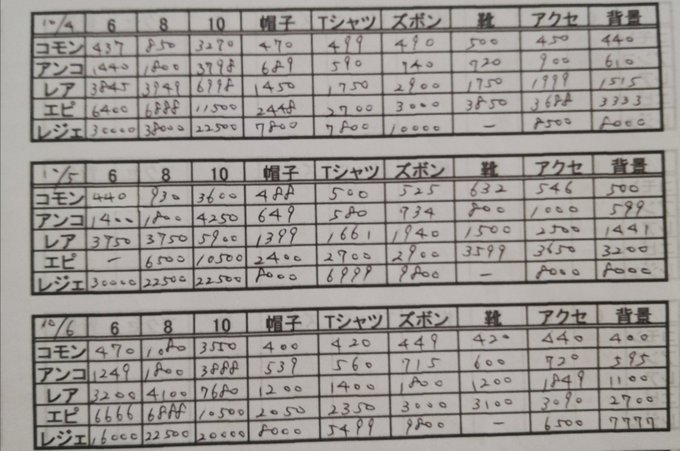 10/4 6 8 10 帽子 Tシャツ ズボン 靴 アクセ 背景
コモン 437 850 3270 470 499 490 500 450 440
アンコ 1440 1800 3798 689 590 740 720 900 610
レア 3845 3949 6998 1450 1750 2900 1750 1999 1515
エピ 6400 6888 11500 2448 2700 3000 3850 3688 3333
レジェ 30000 38000 22500 7800 7800 10000 - 8500 8000
10/5 6 8 10 帽子 Tシャツ ズボン 靴 アクセ 背景
コモン 440 930 3600 488 500 525 632 546 500
アンコ 1400 1800 4250 649 580 734 800 1000 599
レア 3750 3750 5900 1399 1661 1940 1500 2500 1441
エピ - 6500 10500 2400 2700 2900 3599 3650 3200
レジェ 30000 22500 22500 8000 6999 9800 - 8000 8000
10/6 6 8 10 帽子 Tシャツ ズボン 靴 アクセ 背景
コモン 470 1080 3550 400 420 449 420 440 400
アンコ 1249 1800 3888 539 560 715 600 720 595
レア 3200 4100 7680 1200 1400 1800 1200 1849 1100
エピ 6666 6888 10500 2050 2350 3000 3100 3090 2700
レジェ 16000 22500 20000 8000 5499 9800 - 6500 7777